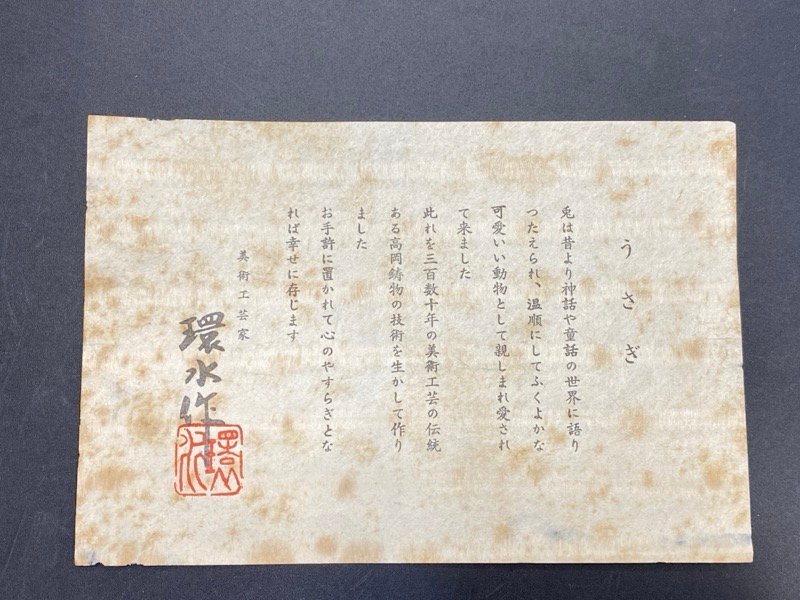 うさぎ
兎は昔より神話や童話の世界に語り
つたえられ、温順にしてふくよかな
可愛いい動物として親しまれ愛され
て来ました
此れを三百数十年の美術工芸の伝統
ある高岡鋳物の技術を生かして作り
ました
お手許に置かれて心のやすらぎとな
れば幸せに存じます
美術工芸家
環水作
環水